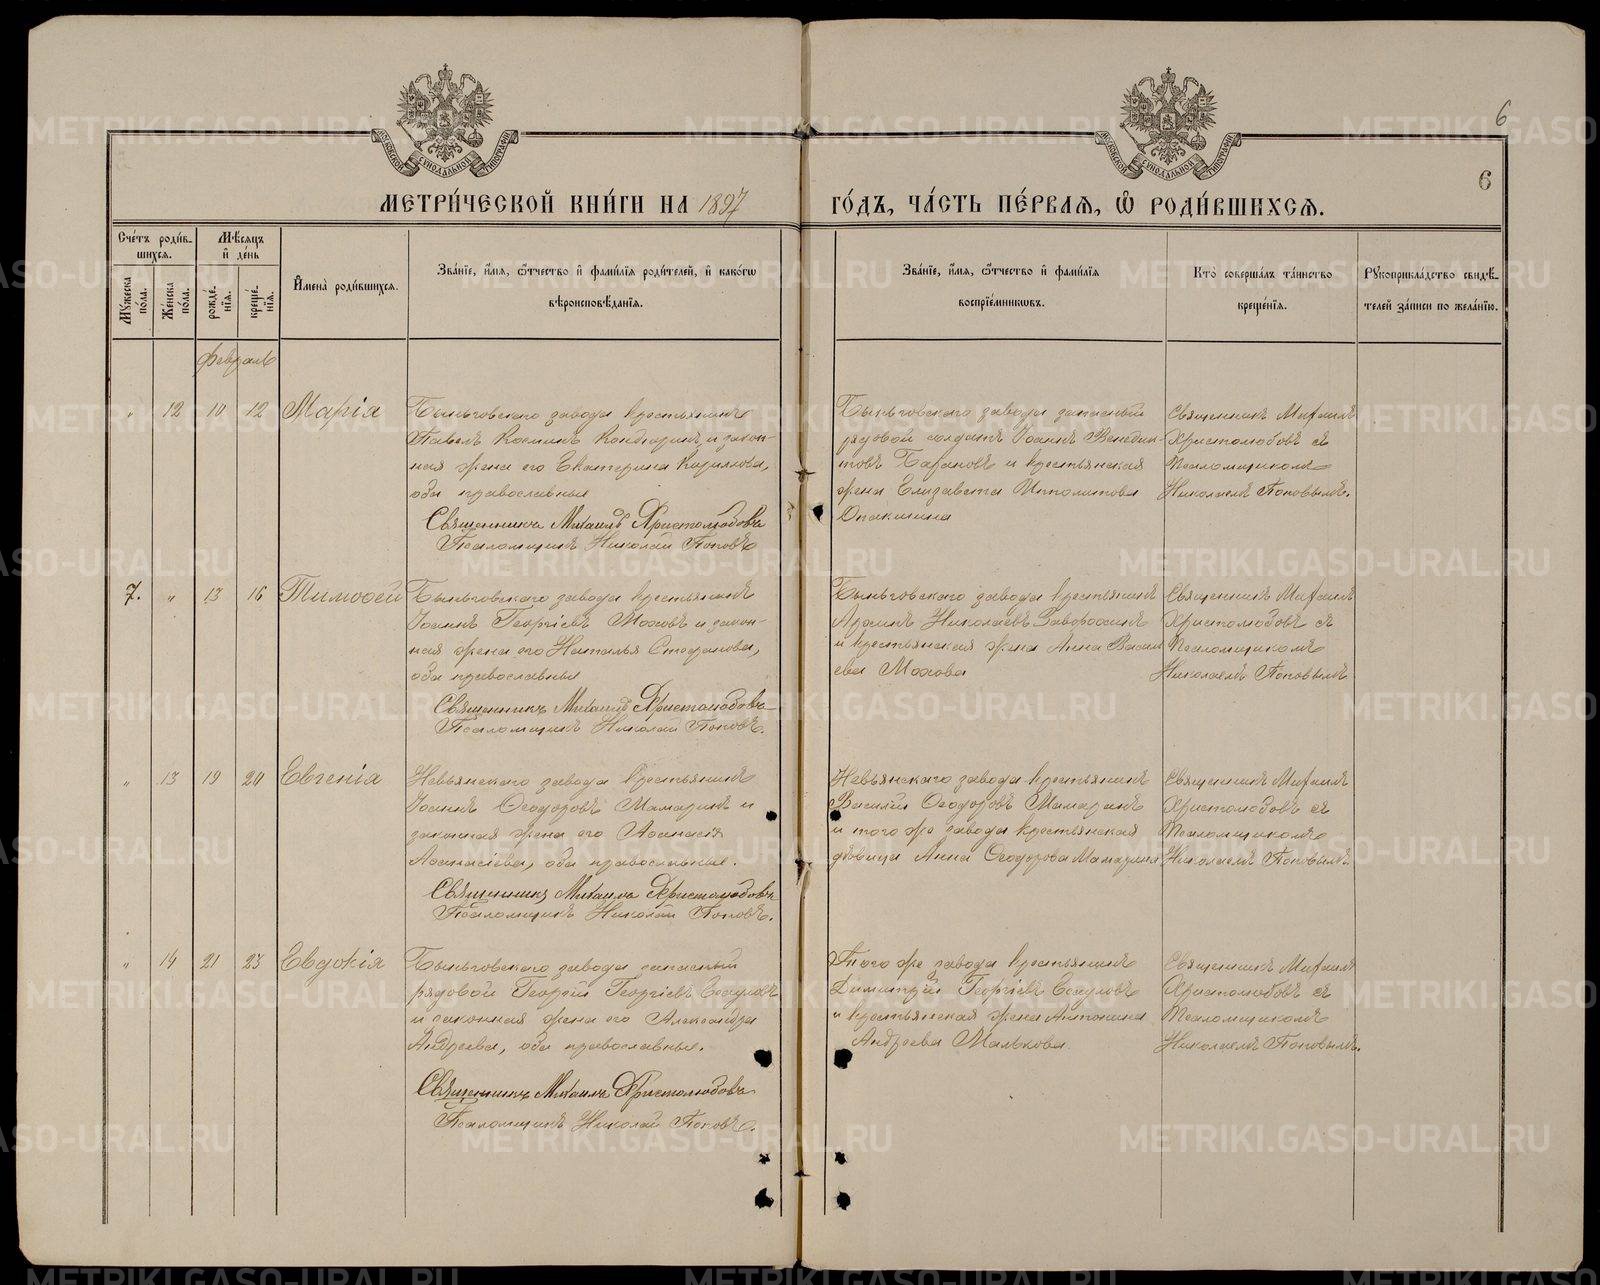 6
6
МОСКОВСКОЙ СѴНОДАЛЬНОЙ ТИПОГРАФІИ
МОСКОВСКОЙ СѴНОДАЛЬНОЙ ТИПОГРАФІИ
МЕТРИ́ЧЕСКОЙ КНИ́ГИ НА 1897
ГО́ДЪ, ЧА́СТЬ ПЕ́РВАѦ, Ѡ҆ РОДИ́ВШИХСѦ.
Сче́тъ роди́в-
шихсѧ.
Мѣ́сѧцъ
и҆ де́нь
Мꙋ́жеска по́ла.
Же́нска по́ла.
рожде́-нїѧ.
креще́-нїѧ.
И҆мена̀ роди́вшихсѧ.
Зва́нїе, и҆́мѧ, ѻ҆́тчество и҆ фами́лїѧ роди́телей, и҆ како́гѡ
вѣроисповѣ́данїѧ.
Зва́нїе, и҆́мѧ, ѻ҆́тчество и҆ фами́лїѧ
воспрїе́мникѡвъ.
Кто̀ соверша́лъ та́инство
креще́нїѧ.
Рꙋкоприкла́дство свидѣ́-
телей за́писи по жела́нїю.
Февраль
„ 12 10 12 Марія
Быньговскаго завода крестьянинъ
Павелъ Косминъ Кондюринъ и закон-
ная жена его Екатерина Кирилова,
оба православные
Священникъ Михаилъ Христолюбовъ
Псаломщикъ Николай Поповъ
Быньговскаго завода запасный
рядовой солдатъ Іоаннъ Венедик-
товъ Барановъ и крестьянская
жена Елизавета Ипполитова
Опакишина
Священникъ Михаилъ
Христолюбовъ съ
Псаломщикомъ
Николаемъ Поповымъ.
7. „ 13 16 Тимоѳей
Быньговскаго завода крестьянинъ
Іоаннъ Георгіевъ Моховъ и закон-
ная жена его Наталья Стефанова,
оба православные
Священникъ Михаилъ Христолюбовъ
Псаломщикъ Николай Поповъ.
Быньговскаго завода крестьянинъ
Николаевъ
и крестьянская жена Анна Василь
ева Мохова
Священникъ Михаилъ
Христолюбовъ съ
Псаломщикомъ
Николаемъ Поповымъ
„ 13 19 20 Евгенія
Невьянскаго завода крестьянинъ
Іоаннъ Ѳеодоровъ Мамаринъ и
законная жена его Аѳанасія
Аѳанасіева, оба православные.
Священникъ Михаилъ Христолюбовъ
Псаломщикъ Николай Поповъ.
Невьянскаго завода крестьянинъ
Василій Ѳеодоровъ Мамаринъ
и того же завода крестьянская
дѣвица Анна Ѳеодорова Мамарина
Священникъ Михаилъ
Христолюбовъ съ
Псаломщикомъ
Николаемъ Поповымъ.
„ 14 21 23 Евдокія
Быньговскаго завода запасный
рядовой Георгій Георгіевъ
и законная жена его Александра
Андреева, оба православные.
Священникъ Михаилъ Христолюбовъ
Псаломщикъ Николай Поповъ.
Того же завода крестьянинъ
Димитрій Георгіевъ
и крестьянская жена Антонина
Андреева Малькова
Священникъ Михаилъ
Христолюбовъ съ
Псаломщикомъ
Николаемъ Поповымъ.
METRIKI.GASO-URAL.RU